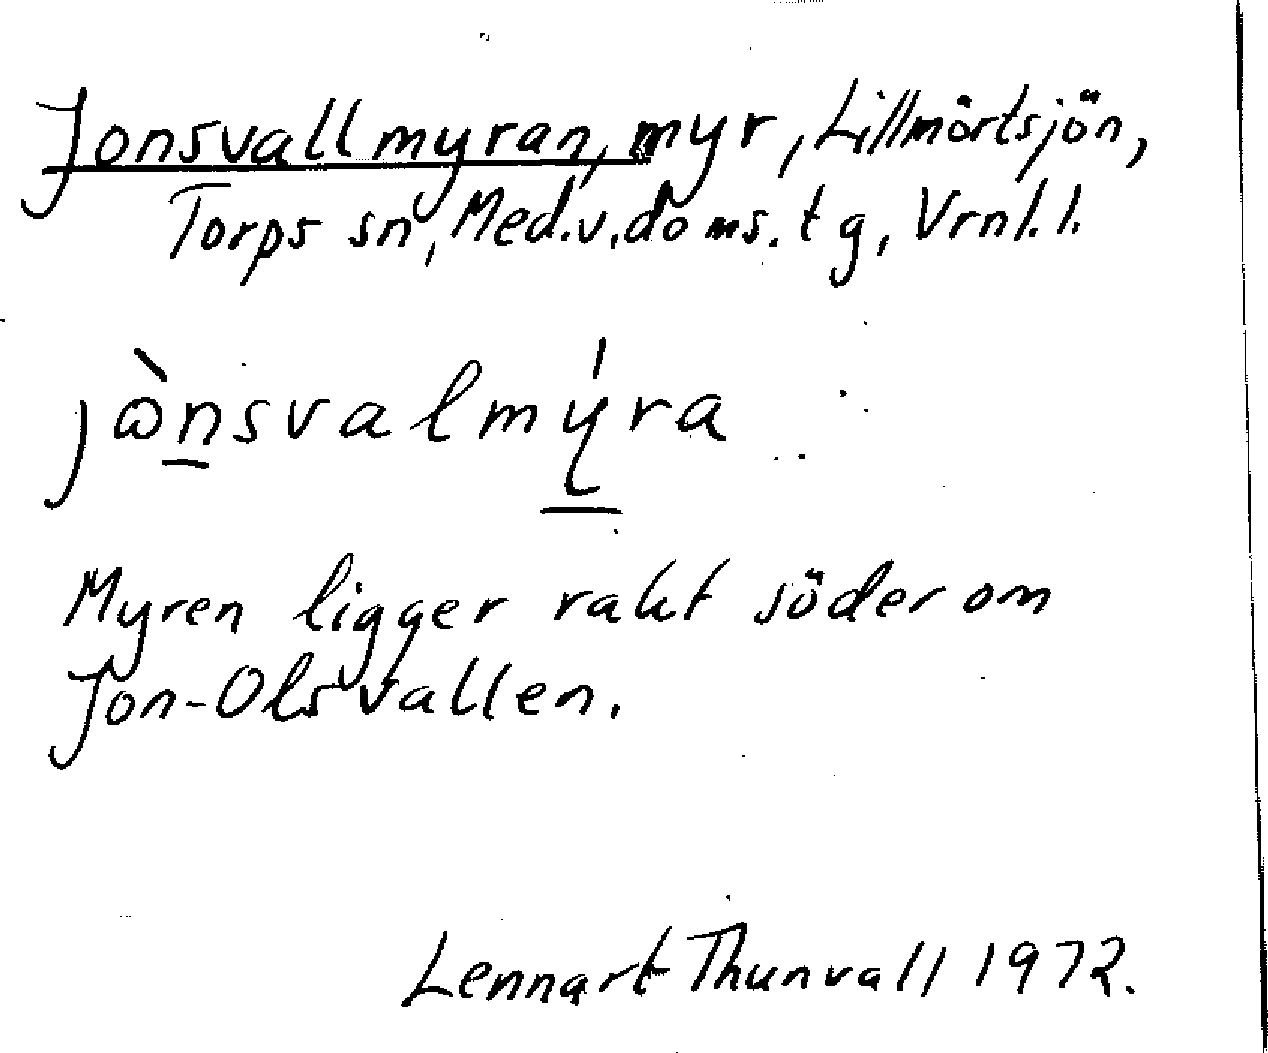 Jonsvallmyran, myr, Lillmörtsjön,
Torps sn, Med.v.doms.tg, Vrnl.l.
jὼn̲svalmý̲ra
Myren ligger rakt söder om
Jon-Olsvallen.
Lennart Thunvall 1972.